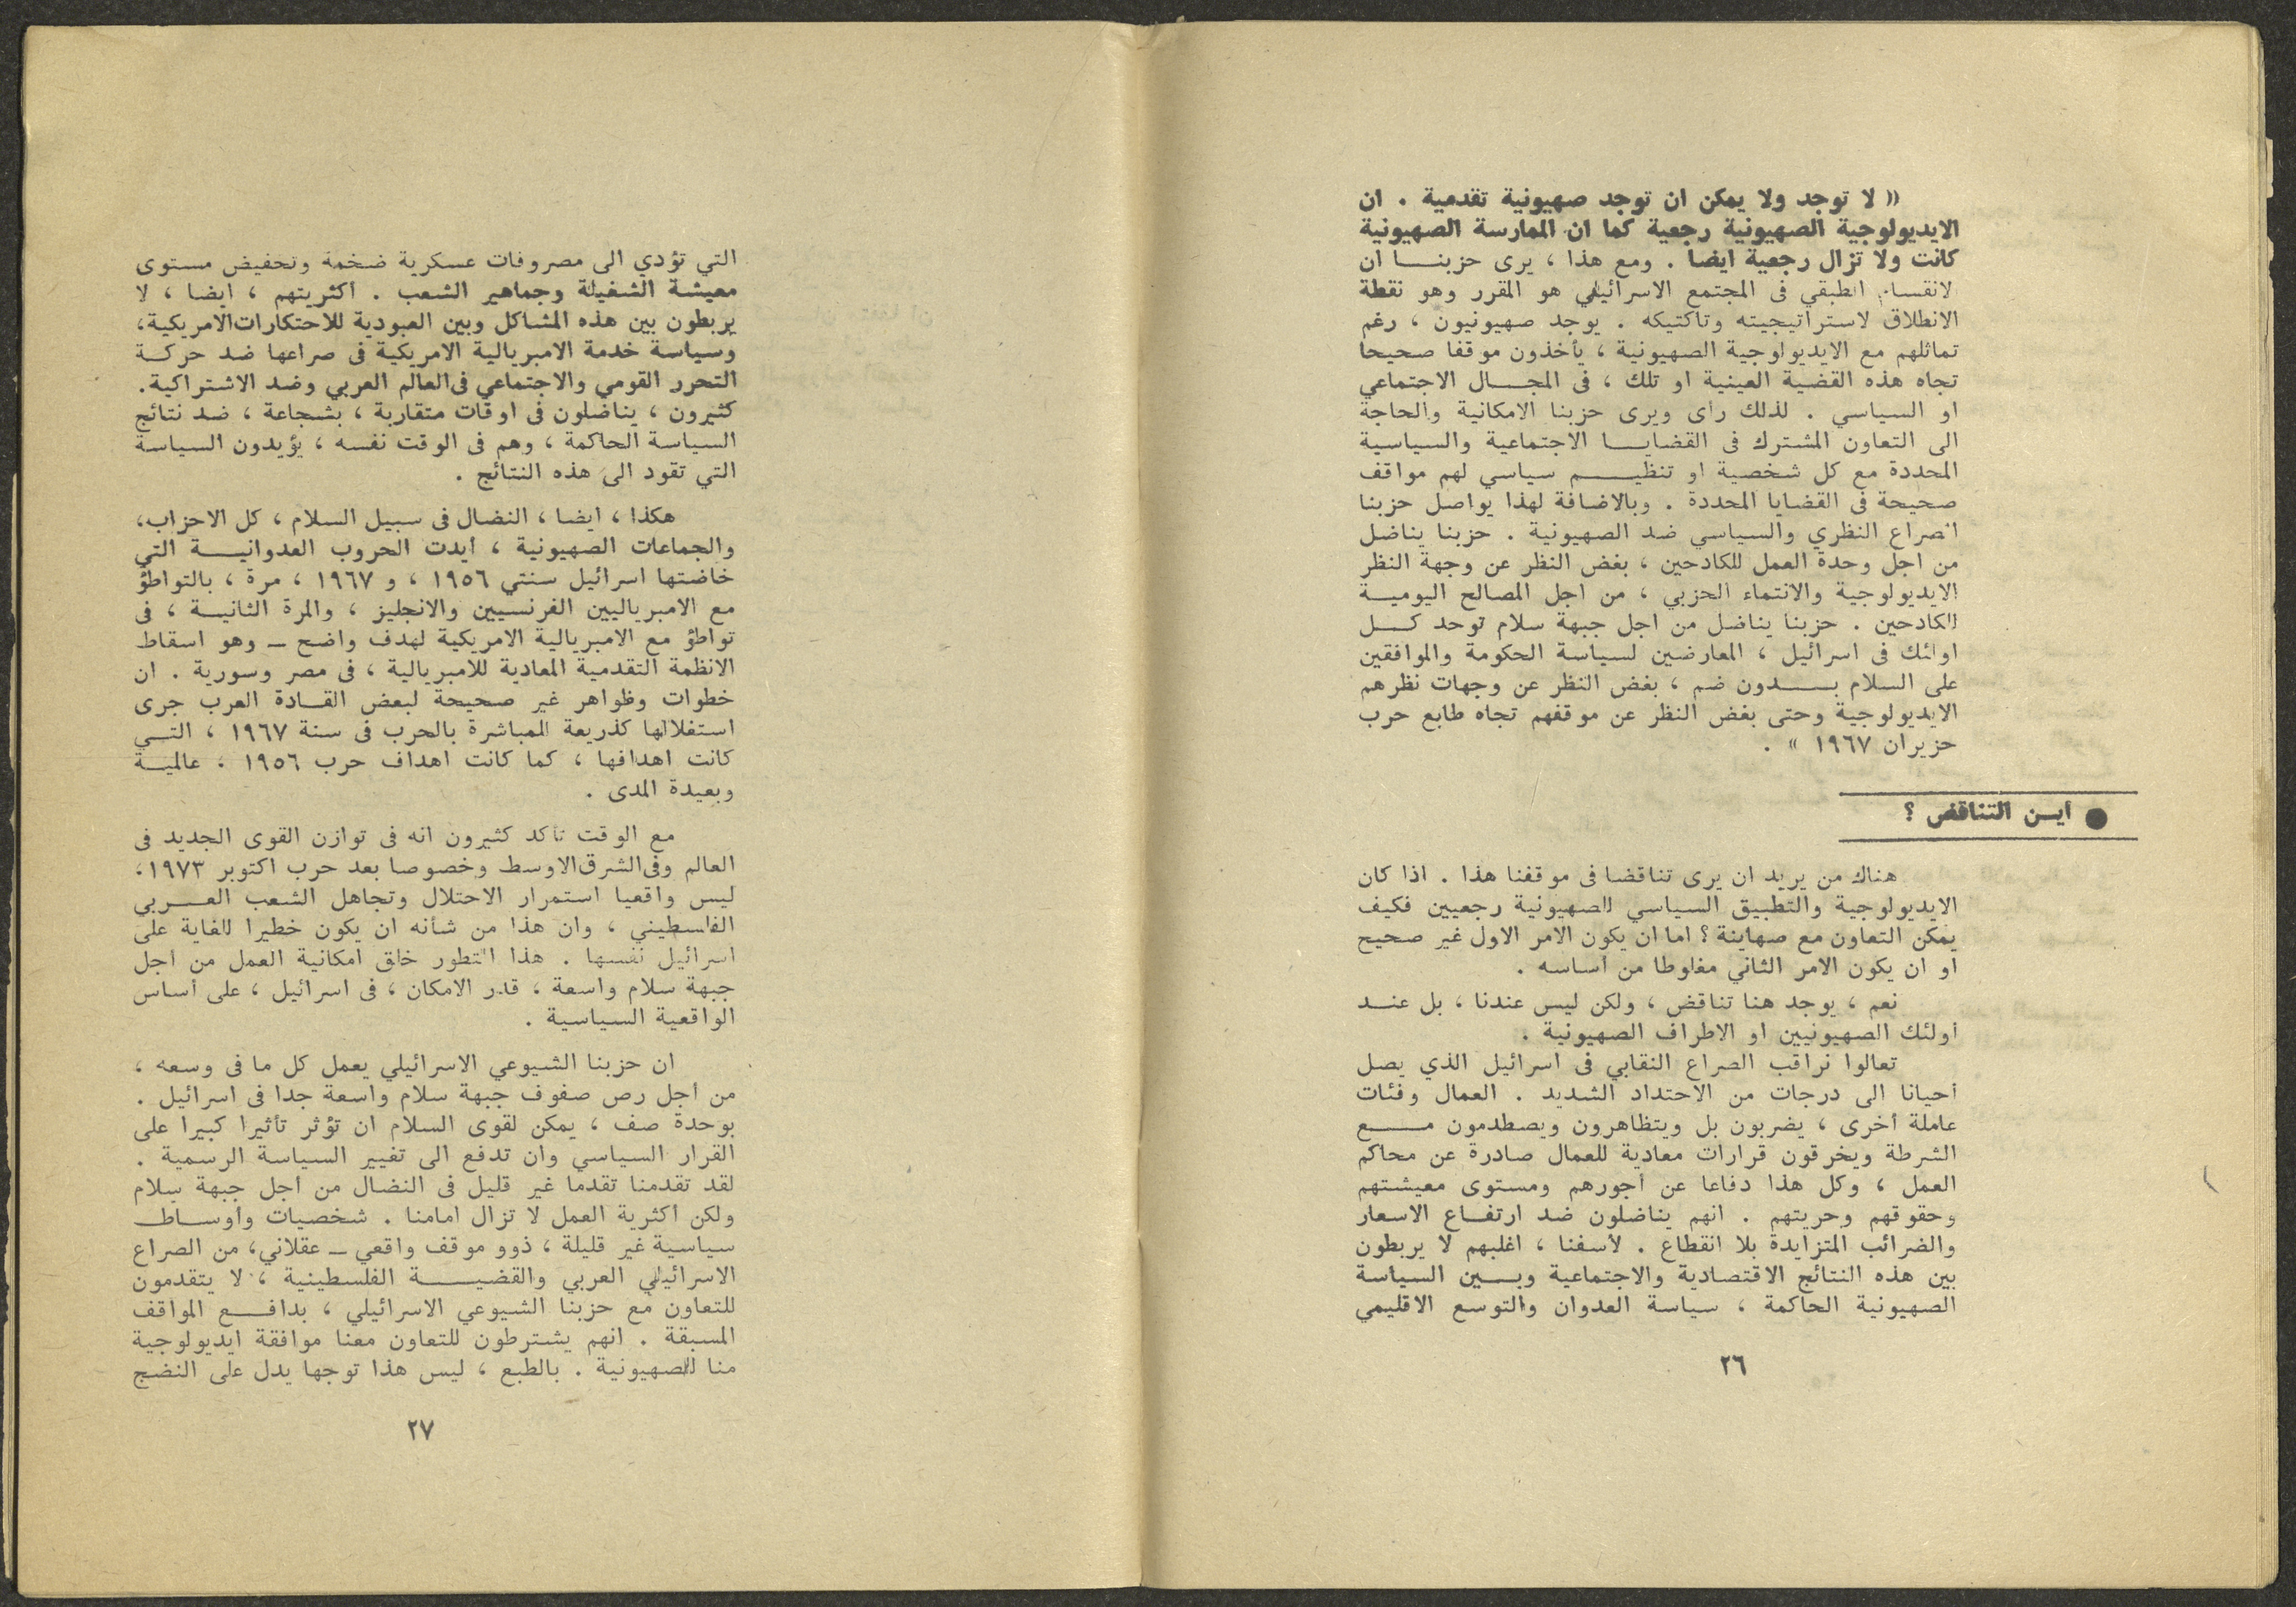 (( لا توجد ولا يمكن ان توجد صهيونية تقدمية . ان
الايديولوجية الصهيونية رجعية كما ان الممارسة الصهيونية
كانت ولا تزال رجعية ايضا . ومع هذا ، يرى حزبنـــا ان
لانقسام الطبقي فى المجتمع الاسرائيلي هو المقرر وهو نقطة
الانطلاق لاستراتيجيته وتاكتيكه . يوجد صهيونيون ، رغم
تماثلهم مع الايديولوجية الصهيونية ، يأخذون موقفا صحيحا
تجاه هذه القضية العينية او تلك ، فى المجـــال الاجتماعي
او السياسي . لذلك رأى ويرى حزبنا الامكانية والحاجة
الى التعاون المشترك فى القضايـــا الاجتماعية والسياسية
المحددة مع كل شخصية او تنظيـــم سياسي لهم مواقف
صحيحة فى القضايا المحددة . وبالاضافة لهذا يواصل حزبنا
الصراع النظري والسياسي ضد الصهيونية . حزبنا يناضل
من اجل وحدة العمل للكادحين ، بغض النظر عن وجهة النظر
الايديولوجية والانتماء الحزبي ، من اجل المصالح اليوميـــة
للكادحين . حزبنا يناضل من اجل جبهة سلام توحد كـــل
اولئك فى اسرائيل ، المعارضين لسياسة الحكومة والموافقين
على السلام بـــدون ضم ، بغض النظر عن وجهات نظرهم
الايديولوجية وحتى بغض النظر عن موقفهم تجاه طابع حرب
حزيران ١٩٦٧ )) .
● أيـن التناقض ؟
هناك من يريد ان يرى تناقضا فى موقفنا هذا . اذا كان
الايديولوجية والتطبيق السياسي للصهيونية رجعيين فكيف
يمكن التعاون مع صهاينة ؟ اما ان يكون الامر الاول غير صحيح
او ان يكون الامر الثاني مغلوطا من أساسه .
نعم ، يوجد هنا تناقض ، ولكن ليس عندنا ، بل عنـــد
أولئك الصهيونيين او الاطراف الصهيونية .
تعالوا نراقب الصراع النقابي فى اسرائيل الذي يصل
أحيانا الى درجات من الاحتداد الشديد . العمال وفئات
عاملة أخرى ، يضربون بل ويتظاهرون ويصطدمون مـــع
الشرطة ويخرقون قرارات معادية للعمال صادرة عن محاكم
العمل ، وكل هذا دفاعا عن أجورهم ومستوى معيشتهم
وحقوقهم وحريتهم . انهم يناضلون ضد ارتفـــاع الاسعار
والضرائب المتزايدة بلا انقطاع . لأسفنا ، اغلبهم لا يربطون
بين هذه النتائج الاقتصادية والاجتماعية وبـــين السياسة
الصهيونية الحاكمة ، سياسة العدوان والتوسع الاقليمي
٢٦
التي تؤدي الى مصروفات عسكرية ضخمة وتخفيض مستوى
معيشة الشغيلة وجماهير الشعب . أكثريتهم ، أيضا ، لا
يربطون بين هذه المشاكل وبين العبودية للاحتكارات الامريكية،
وسياسة خدمة الامبريالية الامريكية فى صراعها ضد حركـــة
التحرر القومي والاجتماعي فى العالم العربي وضد الاشتراكية.
كثيرون ، يناضلون فى اوقات متقاربة ، بشجاعة ، ضد نتائج
السياسة الحاكمة ، وهم فى الوقت نفسه ، يؤيدون السياسة
التي تقود الى هذه النتائج .
هكذا ، أيضا ، النضال فى سبيل السلام ، كل الاحزاب،
والجماعات الصهيونية ، أيدت الحروب العدوانيـــة التي
خاضتها اسرائيل سنتي ١٩٥٦ ، و ١٩٦٧ ، مرة ، بالتواطؤ
مع الامبرياليين الفرنسيين والانجليز ، والمرة الثانيـــة ، فى
تواطؤ مع الامبريالية الامريكية لهدف واضح ــ وهو اسقاط
الانظمة التقدمية المعادية للامبريالية ، فى مصر وسورية . ان
خطوات وظواهر غير صحيحة لبعض القـــادة العرب جرى
استغلالها كذريعة للمباشرة بالحرب فى سنة ١٩٦٧ ، التـــي
كانت اهدافها ، كما كانت اهداف حرب ١٩٥٦ ، عالميـــة
وبعيدة المدى .
مع الوقت تأكد كثيرون انه فى توازن القوى الجديد فى
العالم وفى الشرق الاوسط وخصوصا بعد حرب اكتوبر ١٩٧٣،
ليس واقعيا استمرار الاحتلال وتجاهل الشعب العـــربي
الفلسطيني ، وان هذا من شأنه ان يكون خطيرا للغاية على
اسرائيل نفسها . هذا التطور خلق امكانية العمل من أجل
جبهة سلام واسعة ، قدر الامكان ، فى اسرائيل ، على أساس
الواقعية السياسية .
ان حزبنا الشيوعي الاسرائيلي يعمل كل ما فى وسعه ،
من أجل رص صفوف جبهة سلام واسعة جدا فى اسرائيل .
بوحدة صف ، يمكن لقوى السلام ان تؤثر تأثيرا كبيرا على
القرار السياسي وان تدفع الى تغيير السياسة الرسمية .
لقد تقدمنا تقدما غير قليل فى النضال من أجل جبهة سلام
ولكن أكثرية العمل لا تزال امامنا . شخصيات وأوســـاط
سياسية غير قليلة ، ذوو موقف واقعي ــ عقلاني، من الصراع
الاسرائيلي العربي والقضيـــة الفلسطينية ، لا يتقدمون
للتعاون مع حزبنا الشيوعي الاسرائيلي ، بدافـــع المواقف
المسبقة . انهم يشترطون للتعاون معنا موافقة ايديولوجية
منا للصهيونية . بالطبع ، ليس هذا توجها يدل على النضج
٢٧